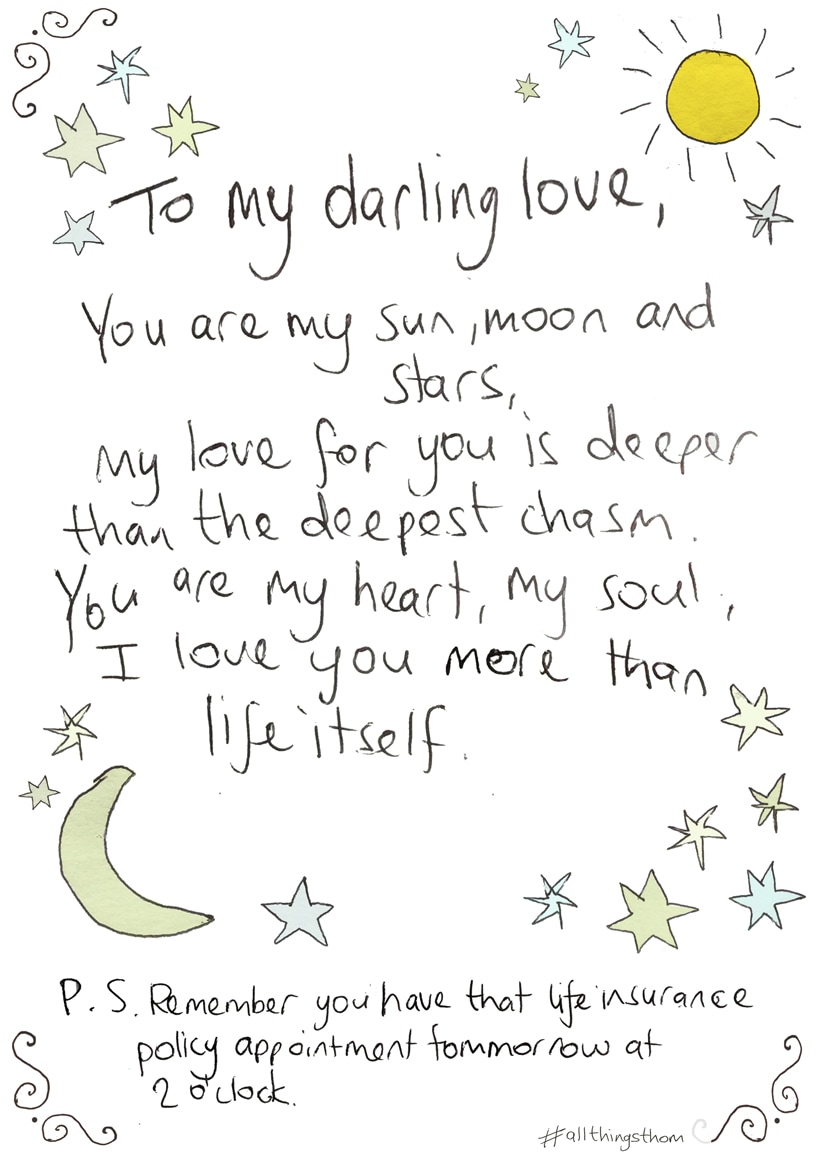 To my darling love,
You are my sun, moon and
stars,
My love for you is deeper
than the deepest chasm.
You are my heart, my soul,
I love you more than
life itself.
P.S. Remember you have that life insurance
policy appointment tommorrow at
2 o'clock.
#allthingsthom